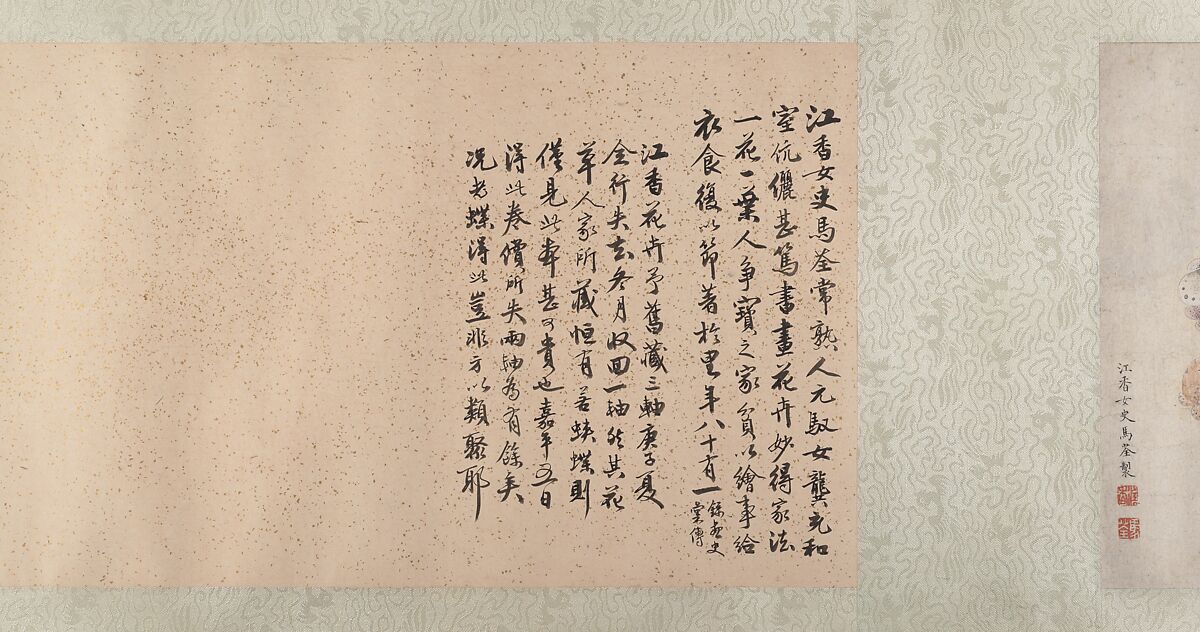 江香女史馬荃製
江香女史馬荃常熟人元馭女龔充和
室伉儷甚篤書畫花卉妙得家法
一花一葉人争寶之家貧以繪事給
衣食復以節著於里年八十有一
錄畫史
彙傳
江香花卉予舊藏三軸庚子夏
全行失去冬月收回一軸然其花
草人家所藏恒有若蛺蝶則
僅見此卷甚可貴也嘉平五日
得此卷償所失兩軸為有餘矣
况老蝶得此豈非方以類聚耶